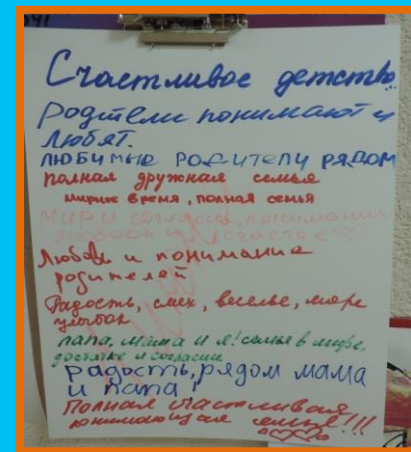 Счастливое детство
родители понимают и
любят.
ЛЮБИМЫЕ РОДИТЕЛИ РЯДОМ
полная дружная семья
мирное время, полная семья
мир и согласие, понимание
любовь и счастье
Любовь и понимание
родителей
Радость, смех, веселье, море
улыбок
папа, мама и я! семья в мире,
достатке и согласии
радость, рядом мама
и папа!
Полная счастливая
понимающая семья!!!